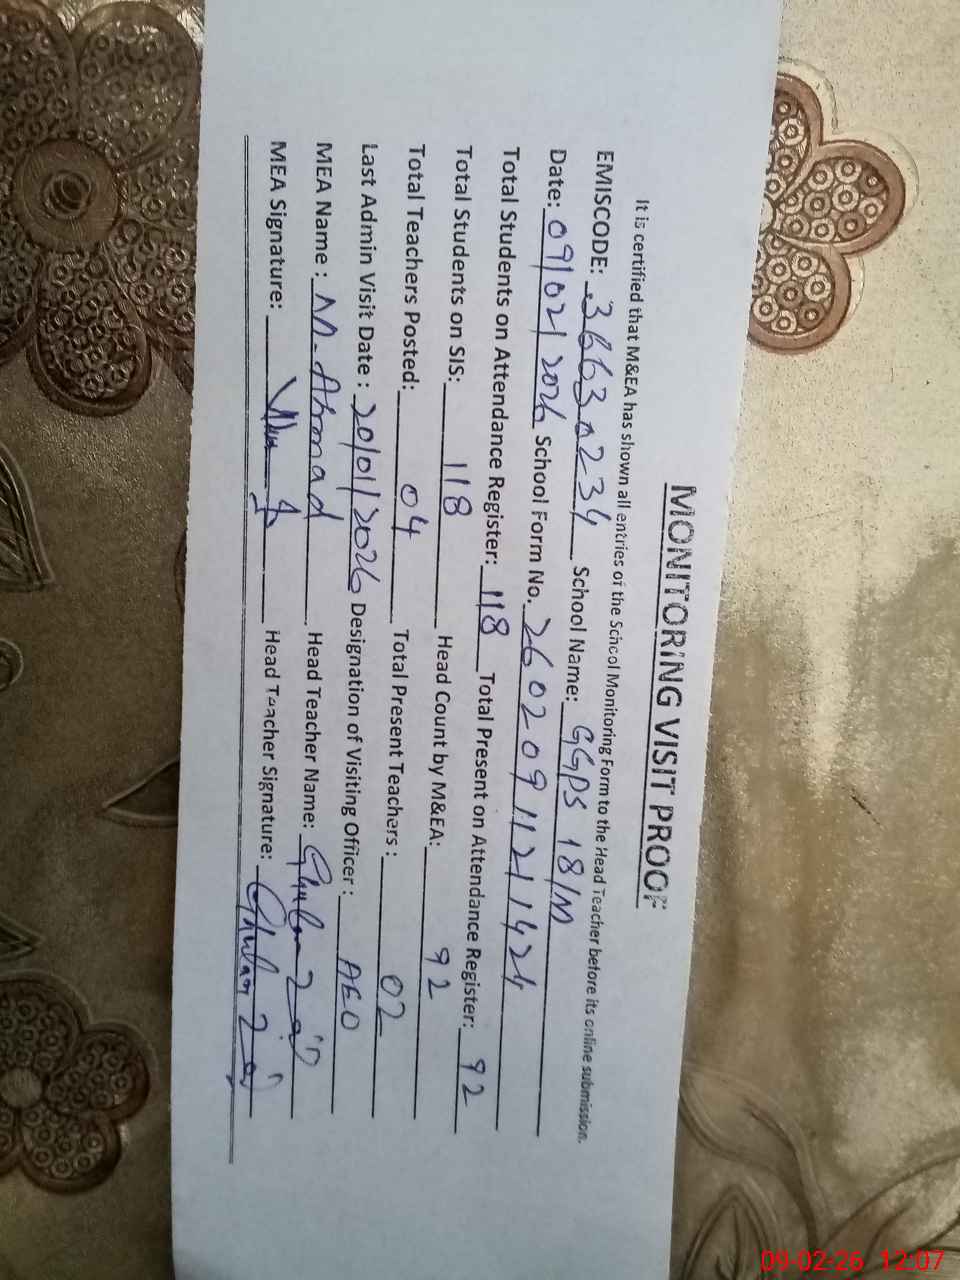 MONITORING VISIT PROOF
It is certified that M&EA has shown all entries of the School Monitoring Form to the Head Teacher before its online submission.
EMISCODE: 36630234 School Name: GGPS 18/M
Date: 09/02/2026 School Form No. 26020911211424
Total Students on Attendance Register: 118 Total Present on Attendance Register: 92
Total Students on SIS: 118 Head Count by M&EA: 92
Total Teachers Posted: 04 Total Present Teachers: 02
Last Admin Visit Date: 20/01/2026 Designation of Visiting Officer: AEO
MEA Name: M. Ahmad Head Teacher Name:
MEA Signature: Head Teacher Signature:
09-02-26 12:07